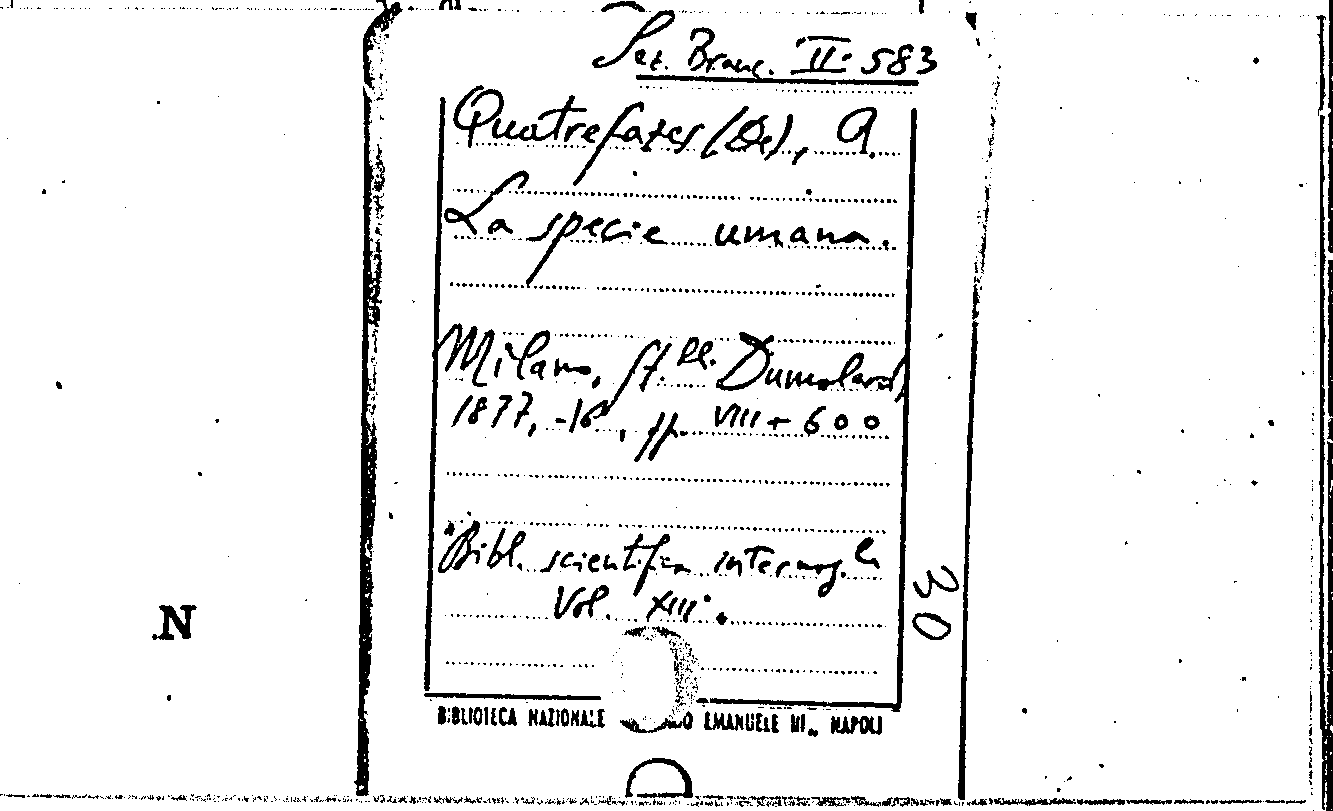 Sez. Branc. II. 583
Quatrefages (De), A.
La specie umana.
Milano, ff.lli. Dumolard,
1877, -16°, pp. VIII + 600
"Bibl. scientifica internaz.le
Vol. XIII".
30
N
BIBLIOTECA NAZIONALE EMANUELE III., NAPOLI